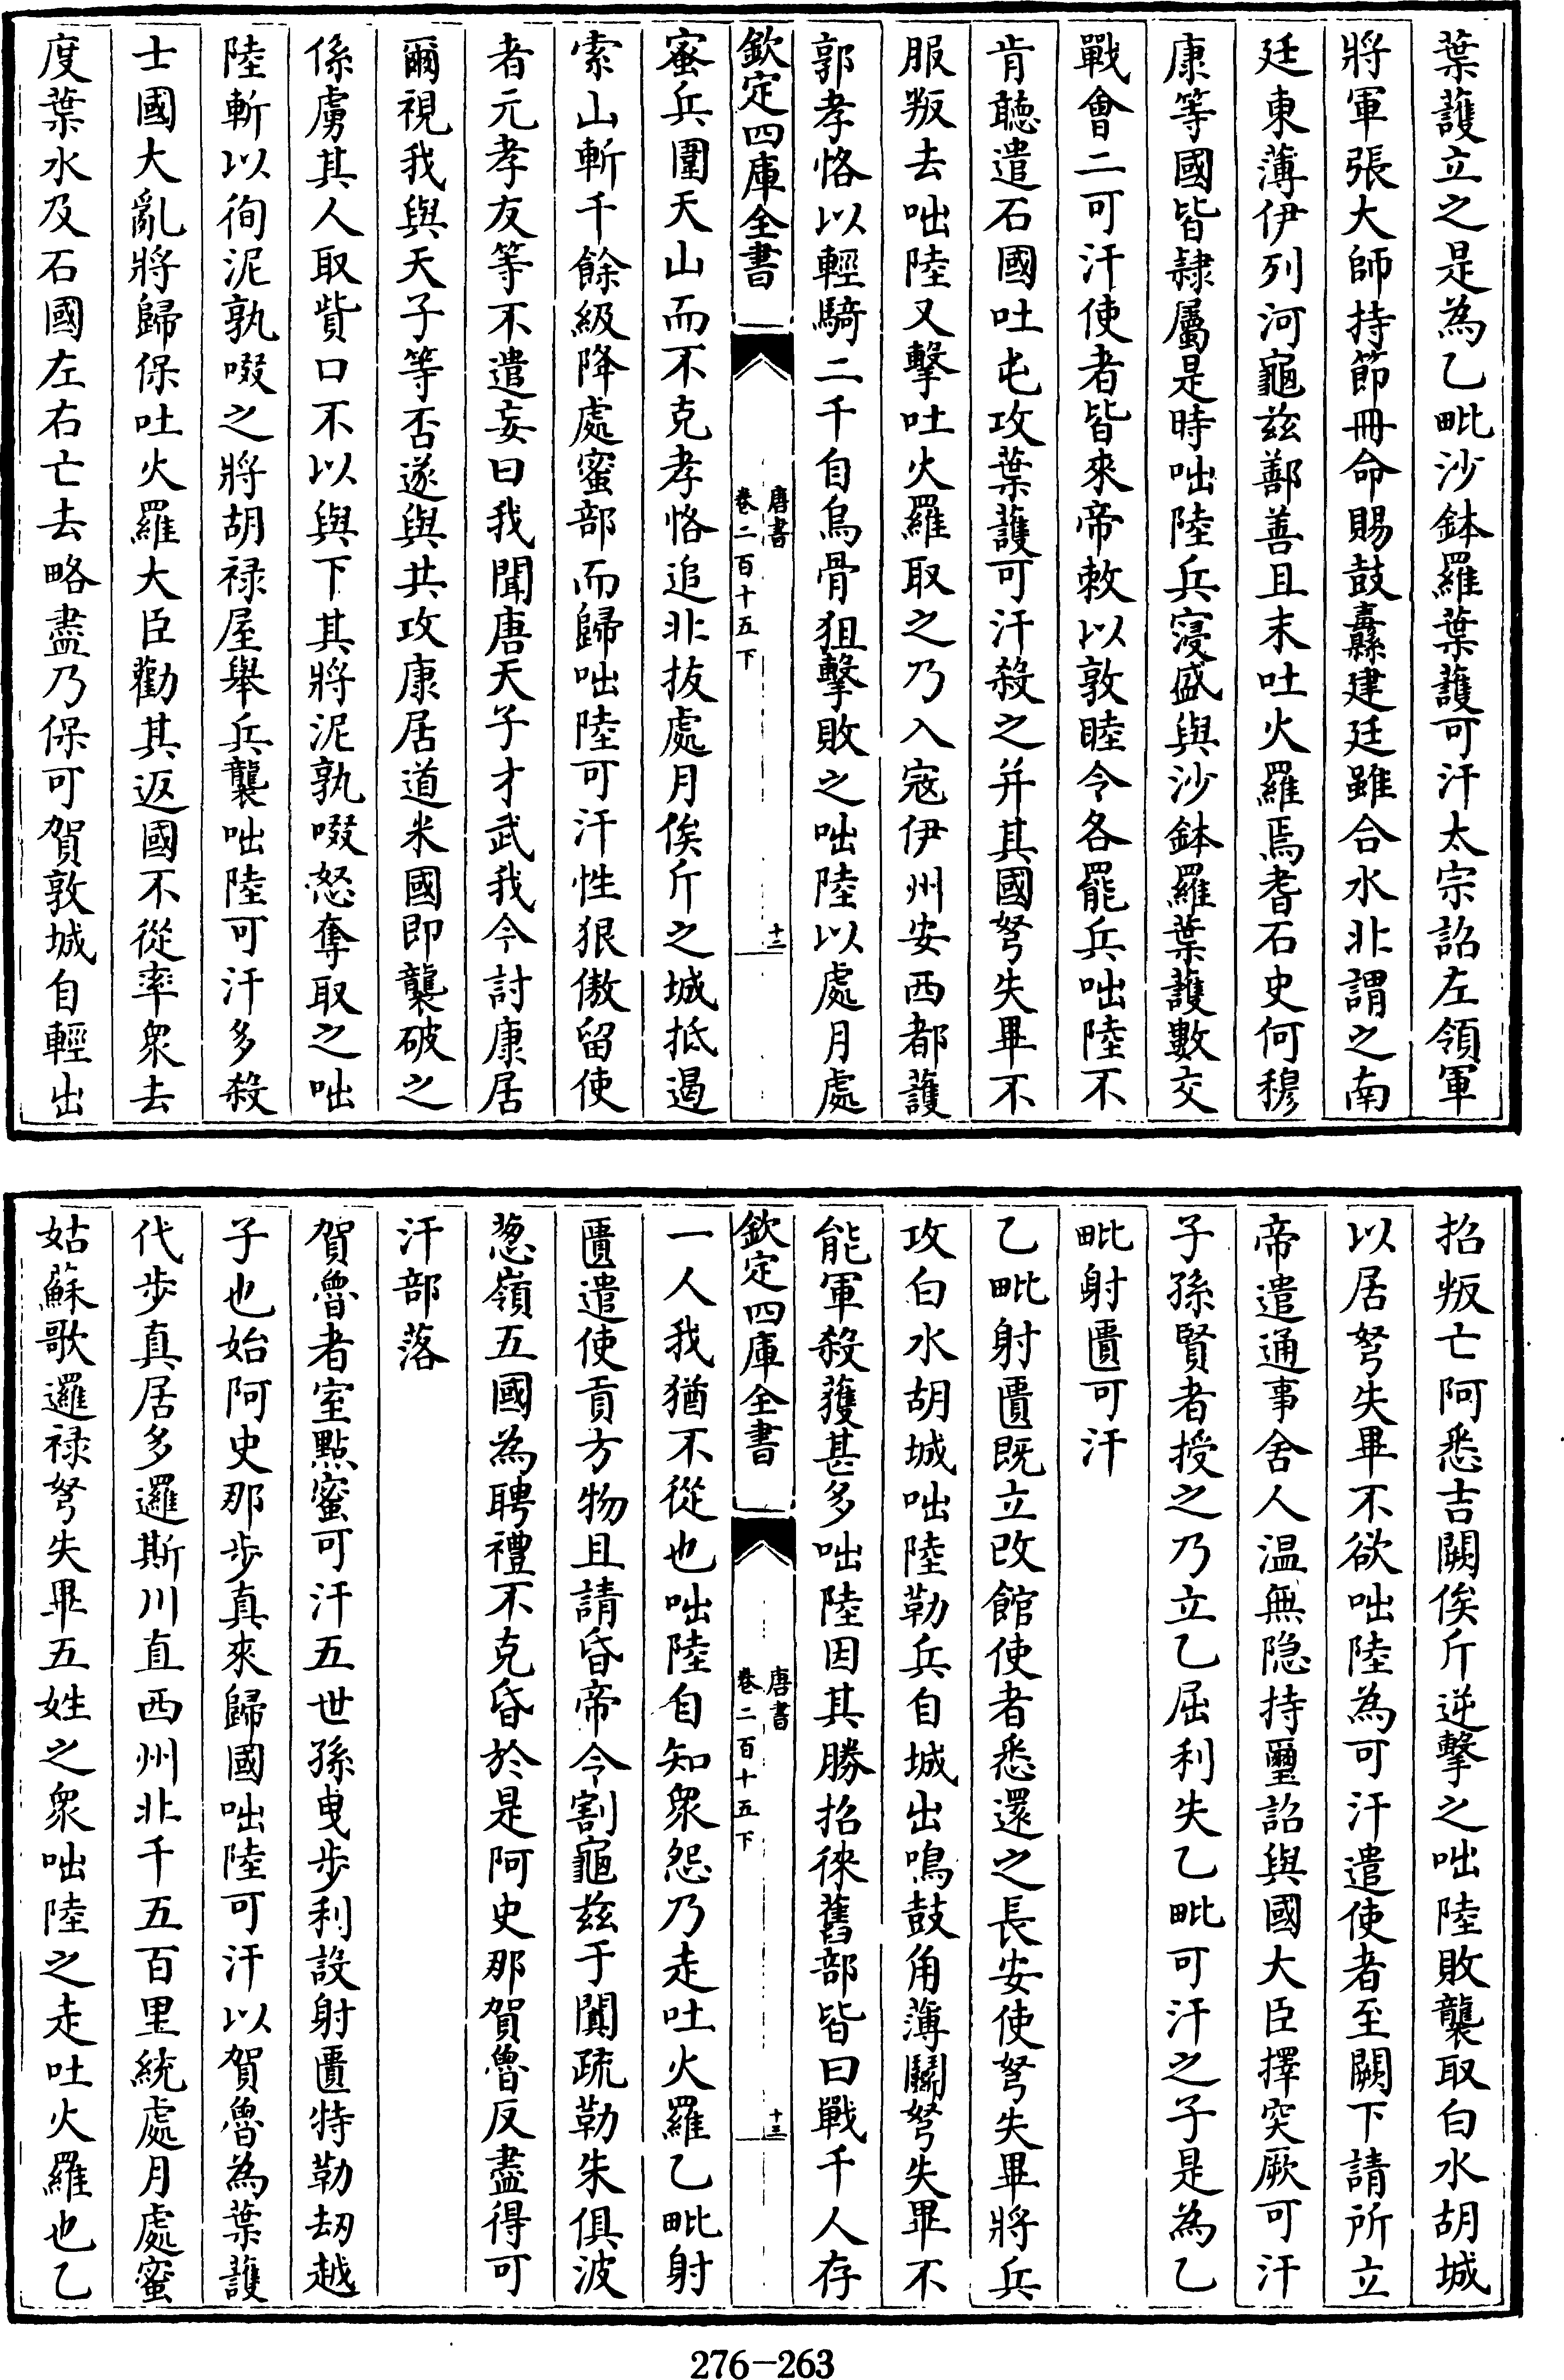 葉護立之是為乙毗沙鉢羅葉護可汗太宗詔左領軍
將軍張大師持節冊命賜鼓纛建廷雖合水北謂之南
廷東薄伊列河龜茲鄯善且末吐火羅焉耆石史何穆
康等國皆隷屬是時咄陸兵寖盛與沙鉢羅葉護數交
戰會二可汗使者皆來帝敕以敦睦令各罷兵咄陸不
肯聽遣石國吐屯攻葉護可汗殺之并其國弩失畢不
服叛去咄陸又擊吐火羅取之乃入寇伊州安西都護
郭孝恪以輕騎二千自烏骨狙擊敗之咄陸以處月處
欽定四庫全書
唐書
卷二百十五下
十二
蜜兵圍天山而不克孝恪追北拔處月俟斤之城抵遏
索山斬千餘級降處蜜部而歸咄陸可汗性狠傲留使
者元孝友等不遣妄曰我聞唐天子才武我今討康居
爾視我與天子等否遂與共攻康居道米國即襲破之
係虜其人取貲口不以與下其將泥孰啜怒奪取之咄
陸斬以徇泥孰啜之將胡祿屋舉兵襲咄陸可汗多殺
士國大亂將歸保吐火羅大臣勸其返國不從率衆去
度葉水及石國左右亡去略盡乃保可賀敦城自輕出
招叛亡阿悉吉闕俟斤逆擊之咄陸敗襲取白水胡城
以居弩失畢不欲咄陸為可汗遣使者至闕下請所立
帝遣通事舍人溫無隱持璽詔與國大臣擇突厥可汗
子孫賢者授之乃立乙屈利失乙毗可汗之子是為乙
毗射匱可汗
乙毗射匱既立改館使者悉還之長安使弩失畢將兵
攻白水胡城咄陸勒兵自城出鳴鼓角薄鬬弩失畢不
能軍殺獲甚多咄陸因其勝招徠舊部皆曰戰千人存
欽定四庫全書
唐書
卷二百十五下
十三
一人我猶不從也咄陸自知衆怨乃走吐火羅乙毗射
匱遣使貢方物且請昏帝令割龜茲于闐疏勒朱俱波
葱嶺五國為聘禮不克昏於是阿史那賀魯反盡得可
汗部落
賀魯者室點蜜可汗五世孫曳步利設射匱特勒劫越
子也始阿史那步真來歸國咄陸可汗以賀魯為葉護
代步真居多邏斯川直西州北千五百里統處月處蜜
姑蘇歌邏祿弩失畢五姓之衆咄陸之走吐火羅也乙
276-263